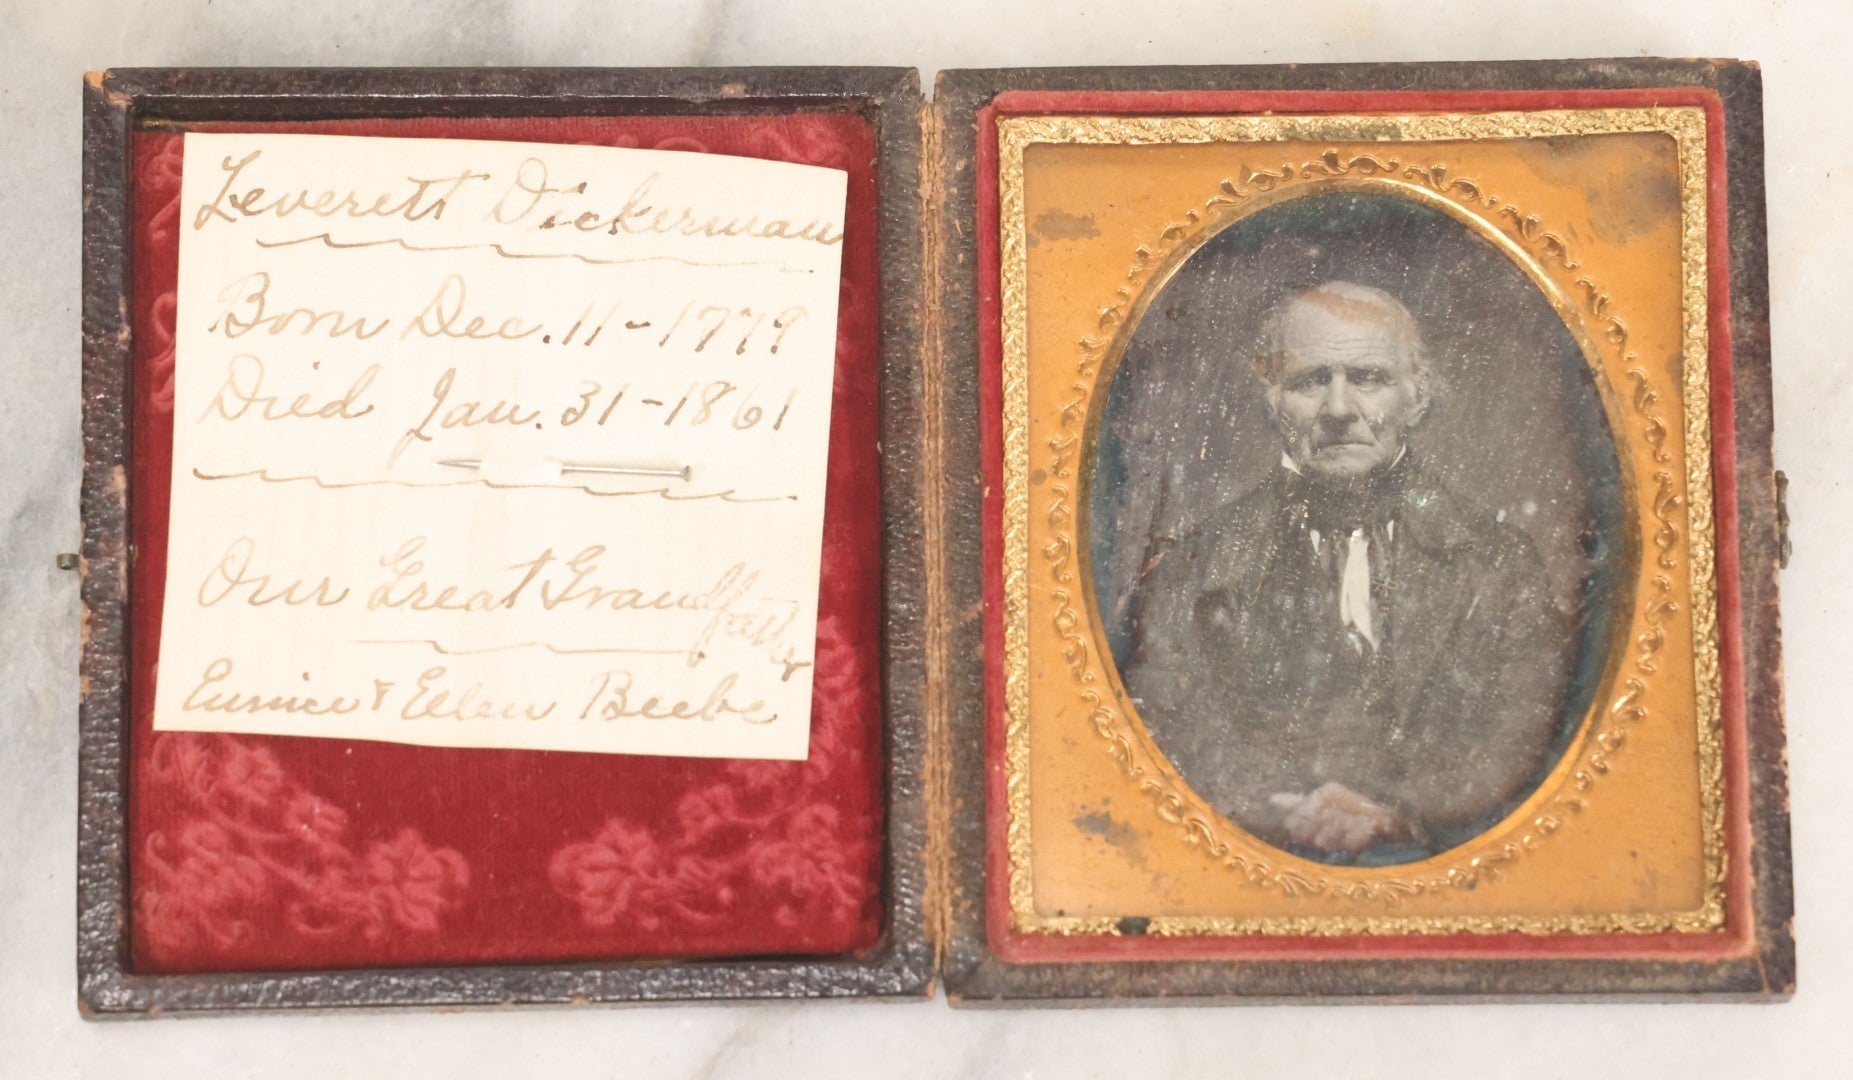 Leverett Dickerman
Born Dec. 11-1779
Died Jan. 31-1861
Our Great Grandfather
Eunice & Ellen Beebe